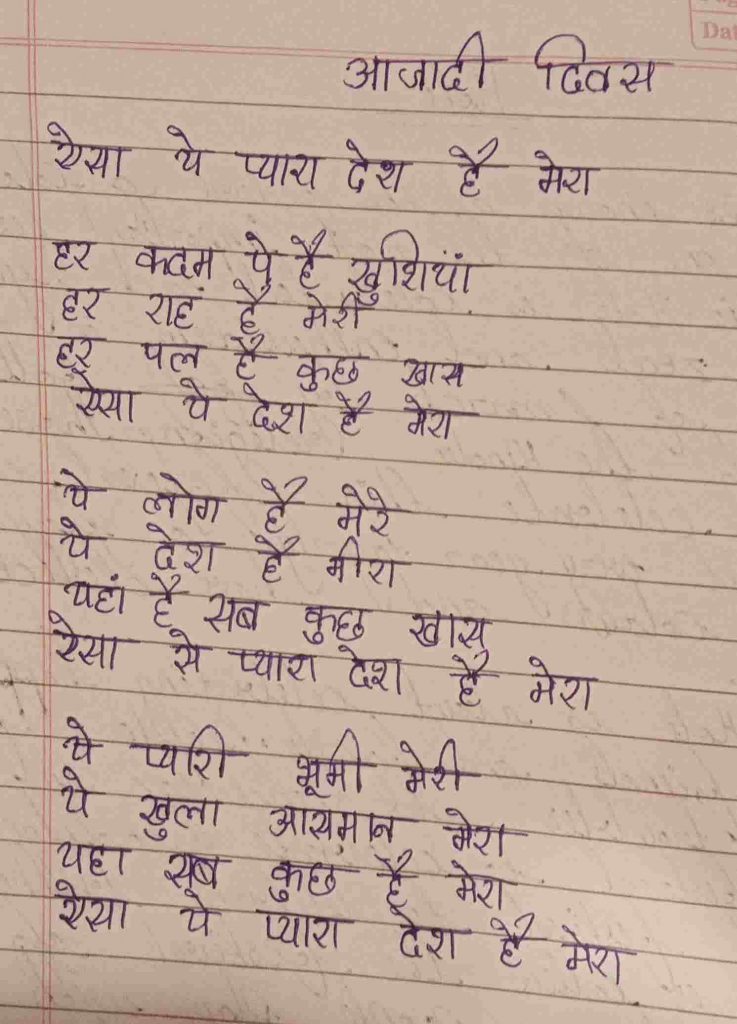 Dat
आजादी दिवस
ऐसा ये प्यारा देश है मेरा
हर कदम पे है खुशियां
हर राह है मेरी
हर पल है कुछ खास
ऐसा ये देश है मेरा
ये लोग है मेरे
ये देश है मेरा
यहां है सब कुछ खास
ऐसा से प्यारा देश है मेरा
ये प्यारी भूमी मेरी
ये खुला आसमान मेरा
यहा सब कुछ है मेरा
ऐसा ये प्यारा देश है मेरा